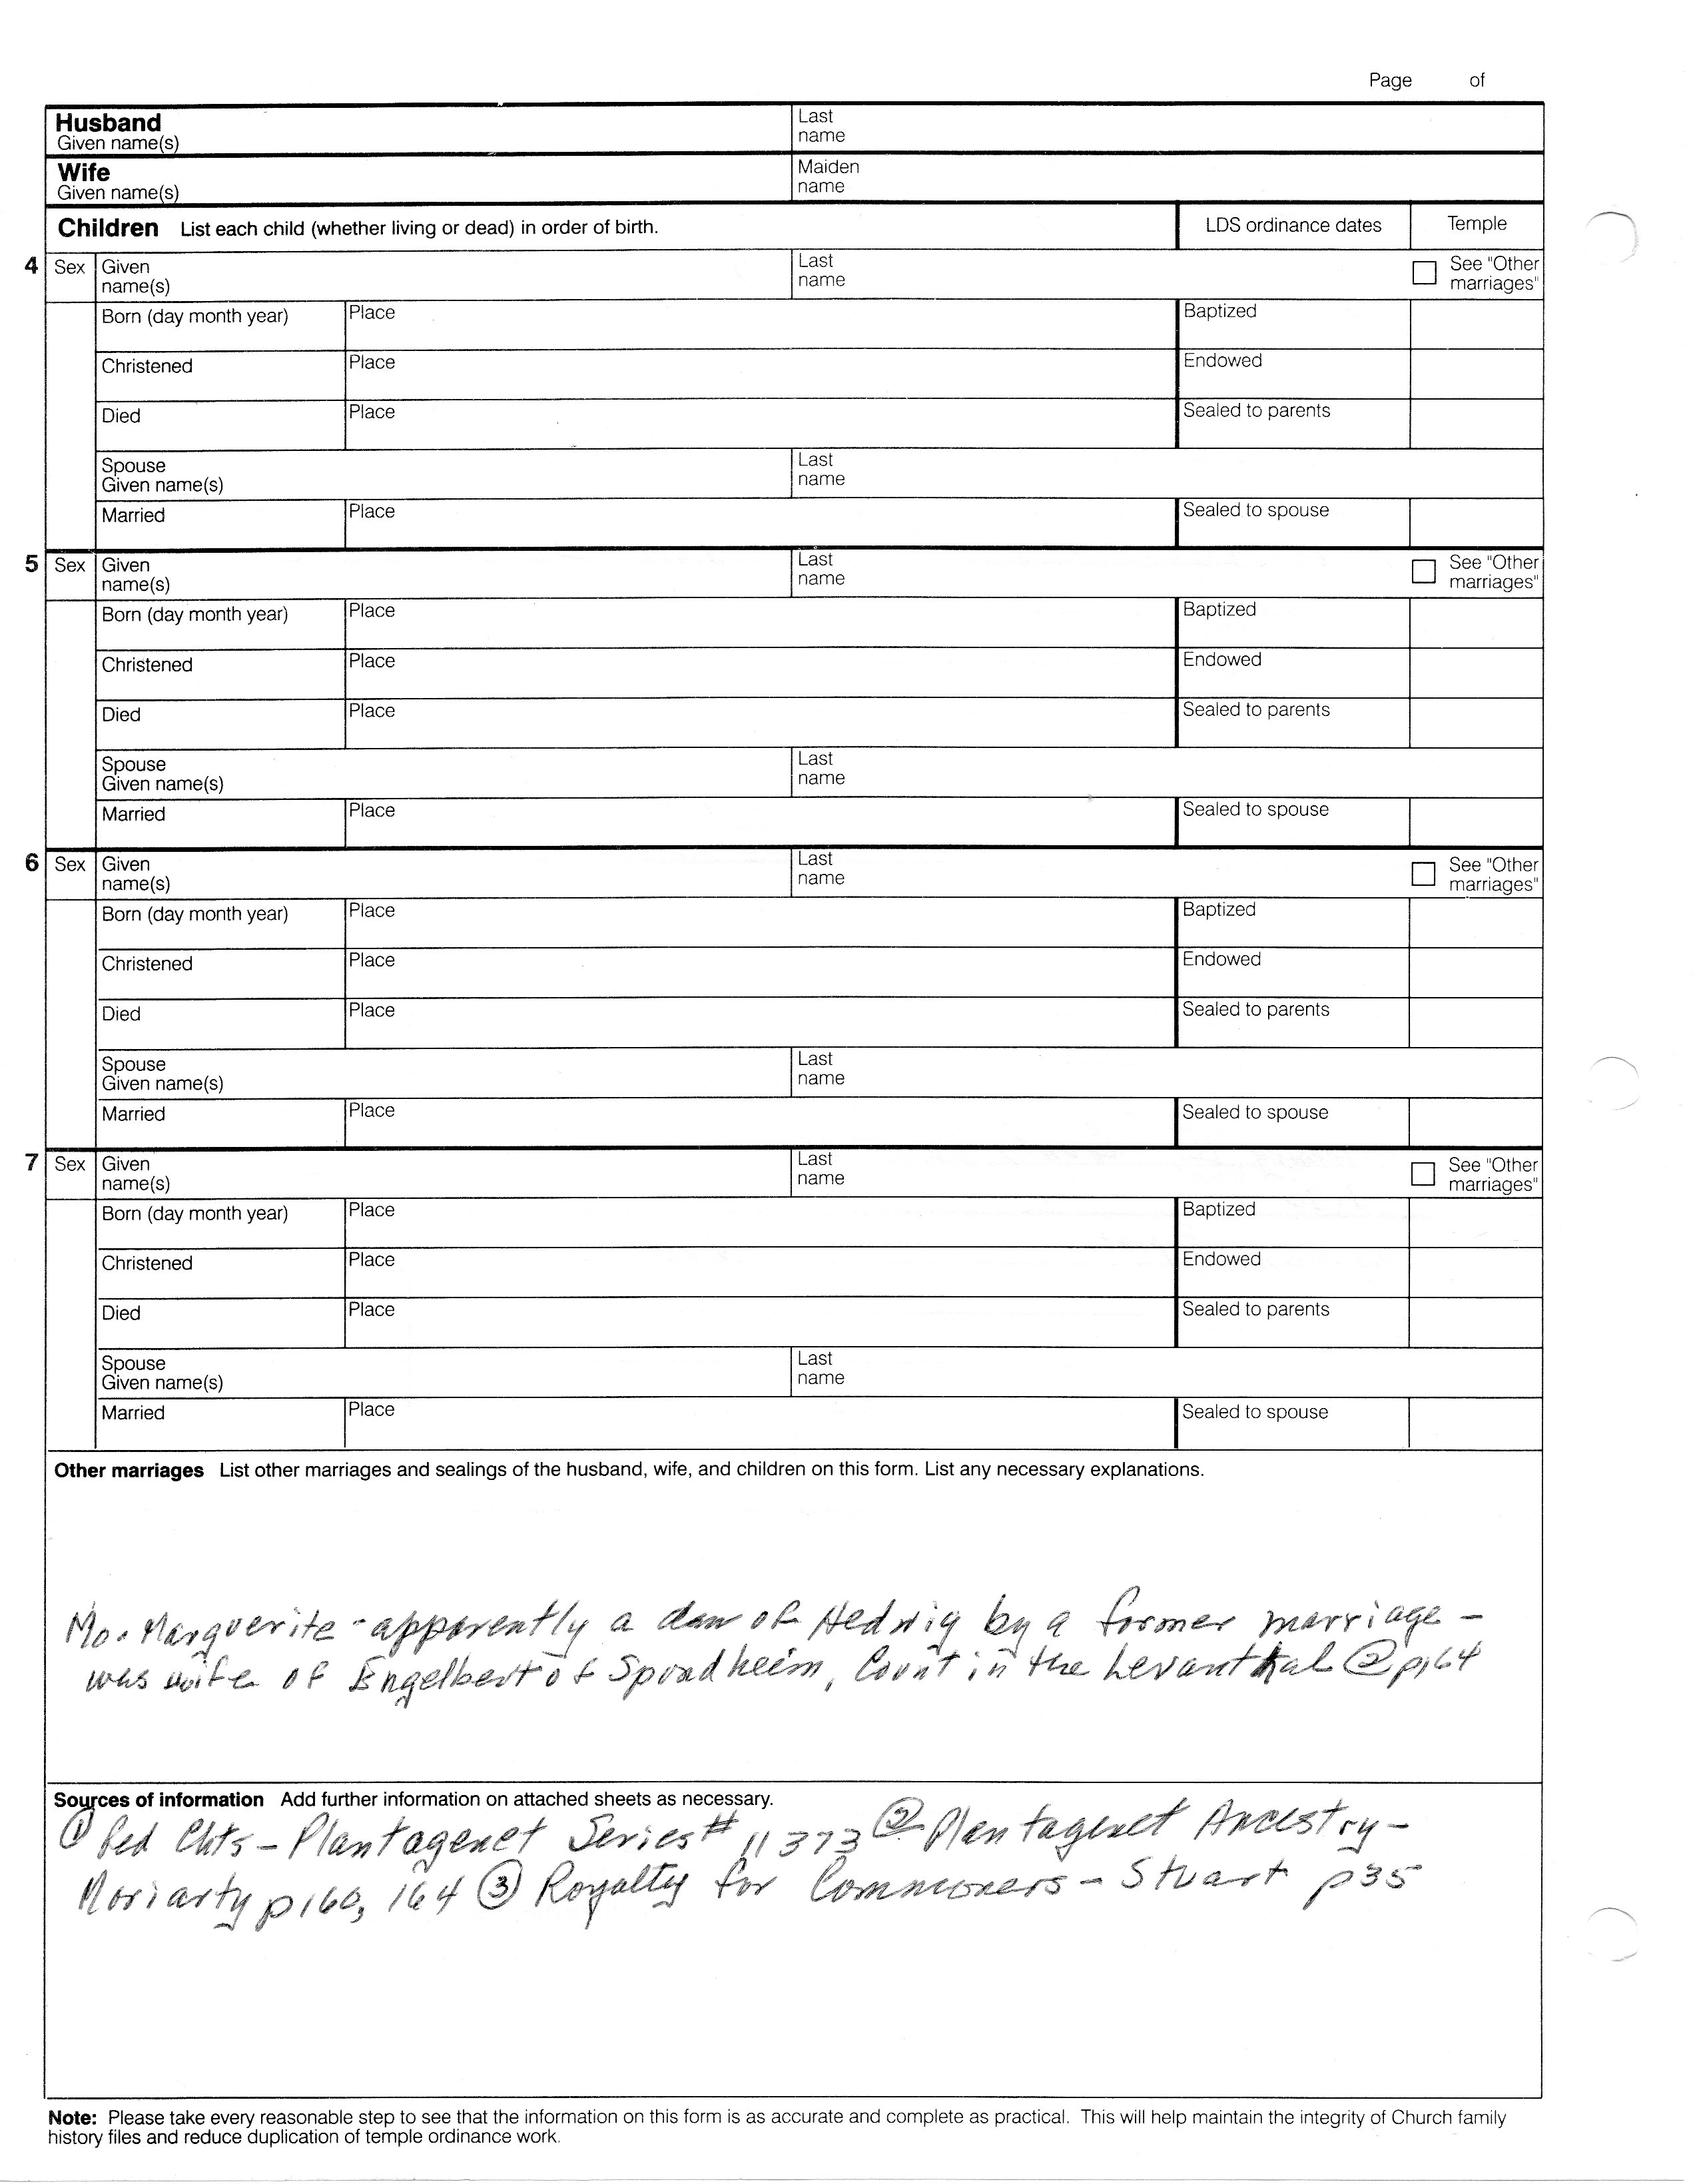 Page of
Husband
Given name(s)
Last
name
Wife
Given name(s)
Maiden
name
Children List each child (whether living or dead) in order of birth.
LDS ordinance dates
Temple
4 Sex Given
name(s)
Last
name
See "Other
marriages"
Born (day month year) Place Baptized
Christened Place Endowed
Died Place Sealed to parents
Spouse
Given name(s)
Last
name
Married Place Sealed to spouse
5 Sex Given
name(s)
Last
name
See "Other
marriages"
Born (day month year) Place Baptized
Christened Place Endowed
Died Place Sealed to parents
Spouse
Given name(s)
Last
name
Married Place Sealed to spouse
6 Sex Given
name(s)
Last
name
See "Other
marriages"
Born (day month year) Place Baptized
Christened Place Endowed
Died Place Sealed to parents
Spouse
Given name(s)
Last
name
Married Place Sealed to spouse
7 Sex Given
name(s)
Last
name
See "Other
marriages"
Born (day month year) Place Baptized
Christened Place Endowed
Died Place Sealed to parents
Spouse
Given name(s)
Last
name
Married Place Sealed to spouse
Other marriages List other marriages and sealings of the husband, wife, and children on this form. List any necessary explanations.
Mo. Marguerite - apparently a dau of Hedwig by a former marriage -
was wife of Engelbert of Sponheim, Count in the Levanthal ② p164
Sources of information Add further information on attached sheets as necessary.
① Ped Chts - Plantagenet Series # 11373 ② Plantagenet Ancestry -
Moriarty p160, 164 ③ Royalty for Commoners - Stuart p35
Note: Please take every reasonable step to see that the information on this form is as accurate and complete as practical. This will help maintain the integrity of Church family
history files and reduce duplication of temple ordinance work.